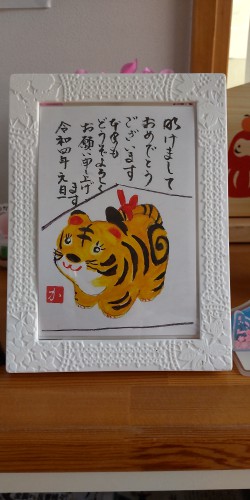 明けまして
おめでとう
ございます
本年も
どうぞよろしく
お願い申し上げ
ます
令和四年 元旦